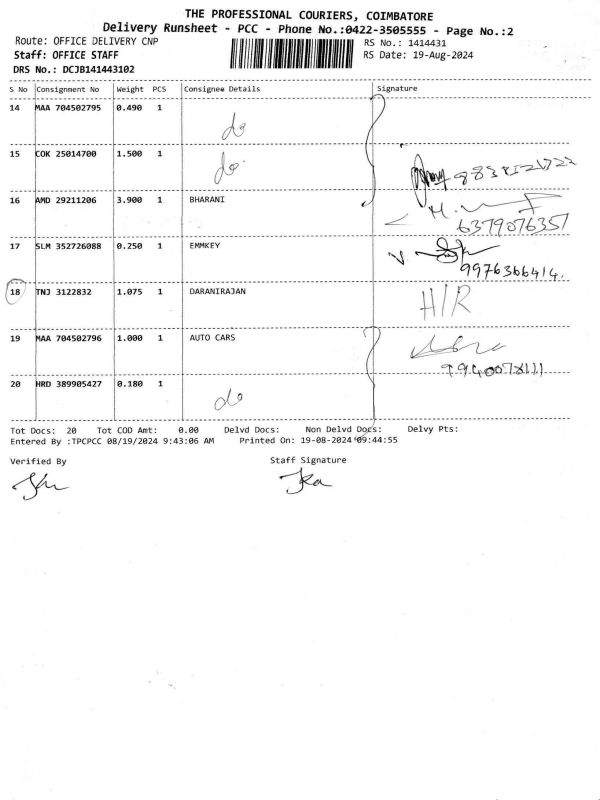 THE PROFESSIONAL COURIERS, COIMBATORE
Delivery Runsheet - PCC - Phone No.:0422-3505555 - Page No.:2
Route: OFFICE DELIVERY CNP RS No.: 1414431
Staff: OFFICE STAFF RS Date: 19-Aug-2024
DRS No.: DCJB141443102
S No Consignment No Weight PCS Consignee Details Signature
14 MAA 704502795 0.490 1 do
15 COK 25014700 1.500 1 do
16 AMD 29211206 3.900 1 BHARANI
6379076357
17 SLM 352726088 0.250 1 EMMKEY
9976366414.
18 TNJ 3122832 1.075 1 DARANIRAJAN H/R
19 MAA 704502796 1.000 1 AUTO CARS
20 HRD 389905427 0.180 1 do
Tot Docs: 20 Tot COD Amt: 0.00 Delvd Docs: Non Delvd Docs: Delvy Pts:
Entered By :TPCPCC 08/19/2024 9:43:06 AM Printed On: 19-08-2024 09:44:55
Verified By Staff Signature